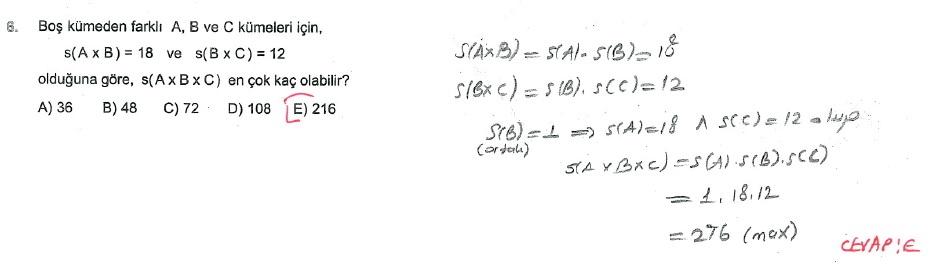 6. Boş kümeden farklı A, B ve C kümeleri için,
s(A x B) = 18 ve s(B x C) = 12
olduğuna göre, s(A x B x C) en çok kaç olabilir?
A) 36 B) 48 C) 72 D) 108 E) 216
S(A×B) = S(A). S(B) = 18
S(B×C) = S(B). S(C) = 12
S(B) = 1 ⇒ S(A)=18 ∧ S(C) = 12 olup
(ortak)
S(A × B × C) = S(A).S(B).S(C)
= 1.18.12
= 276 (max)
CEVAP:E